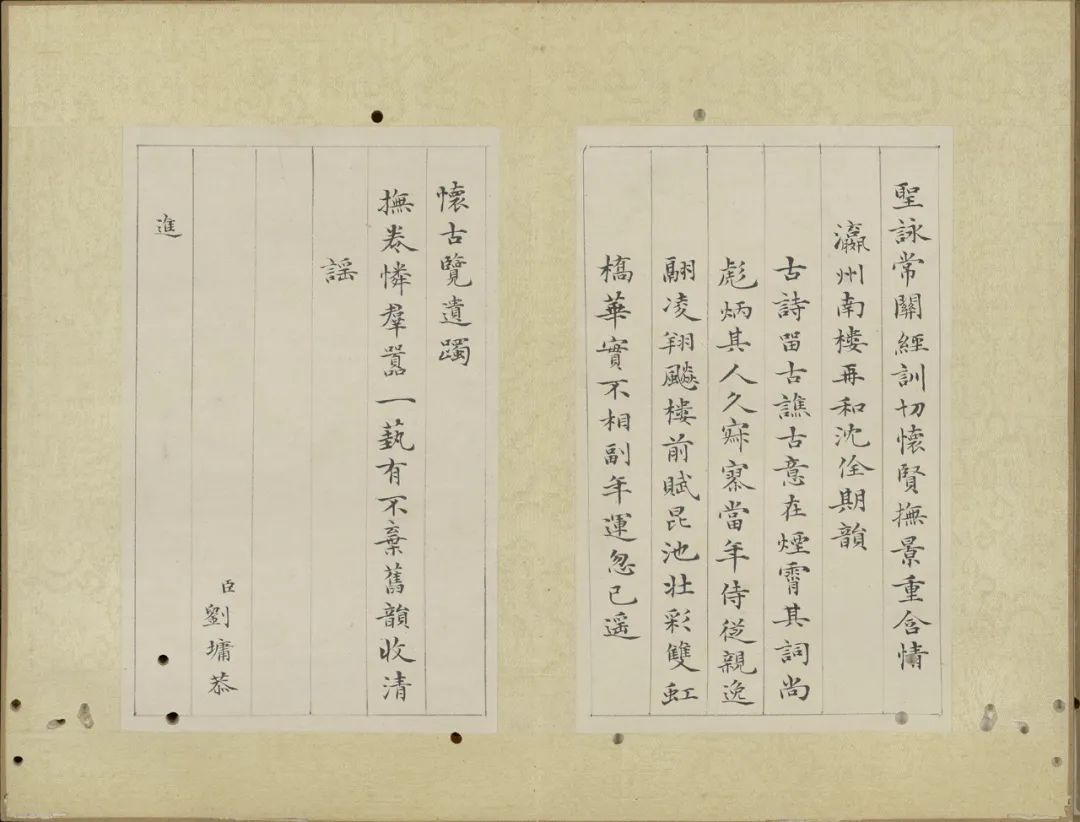 聖詠常關經訓切懷賢撫景重含情
瀛州南樓再和沈佺期韻
古詩留古譙古意在煙霄其詞尚
彪炳其人久寂寥當年侍從親逸
翮凌翔飈樓前賦昆池壯彩雙虹
橋華實不相副年運忽已遥
懷古覽遺躅
撫卷憐羣嚣一藝有不棄舊韻收清
謡
臣劉墉恭
進